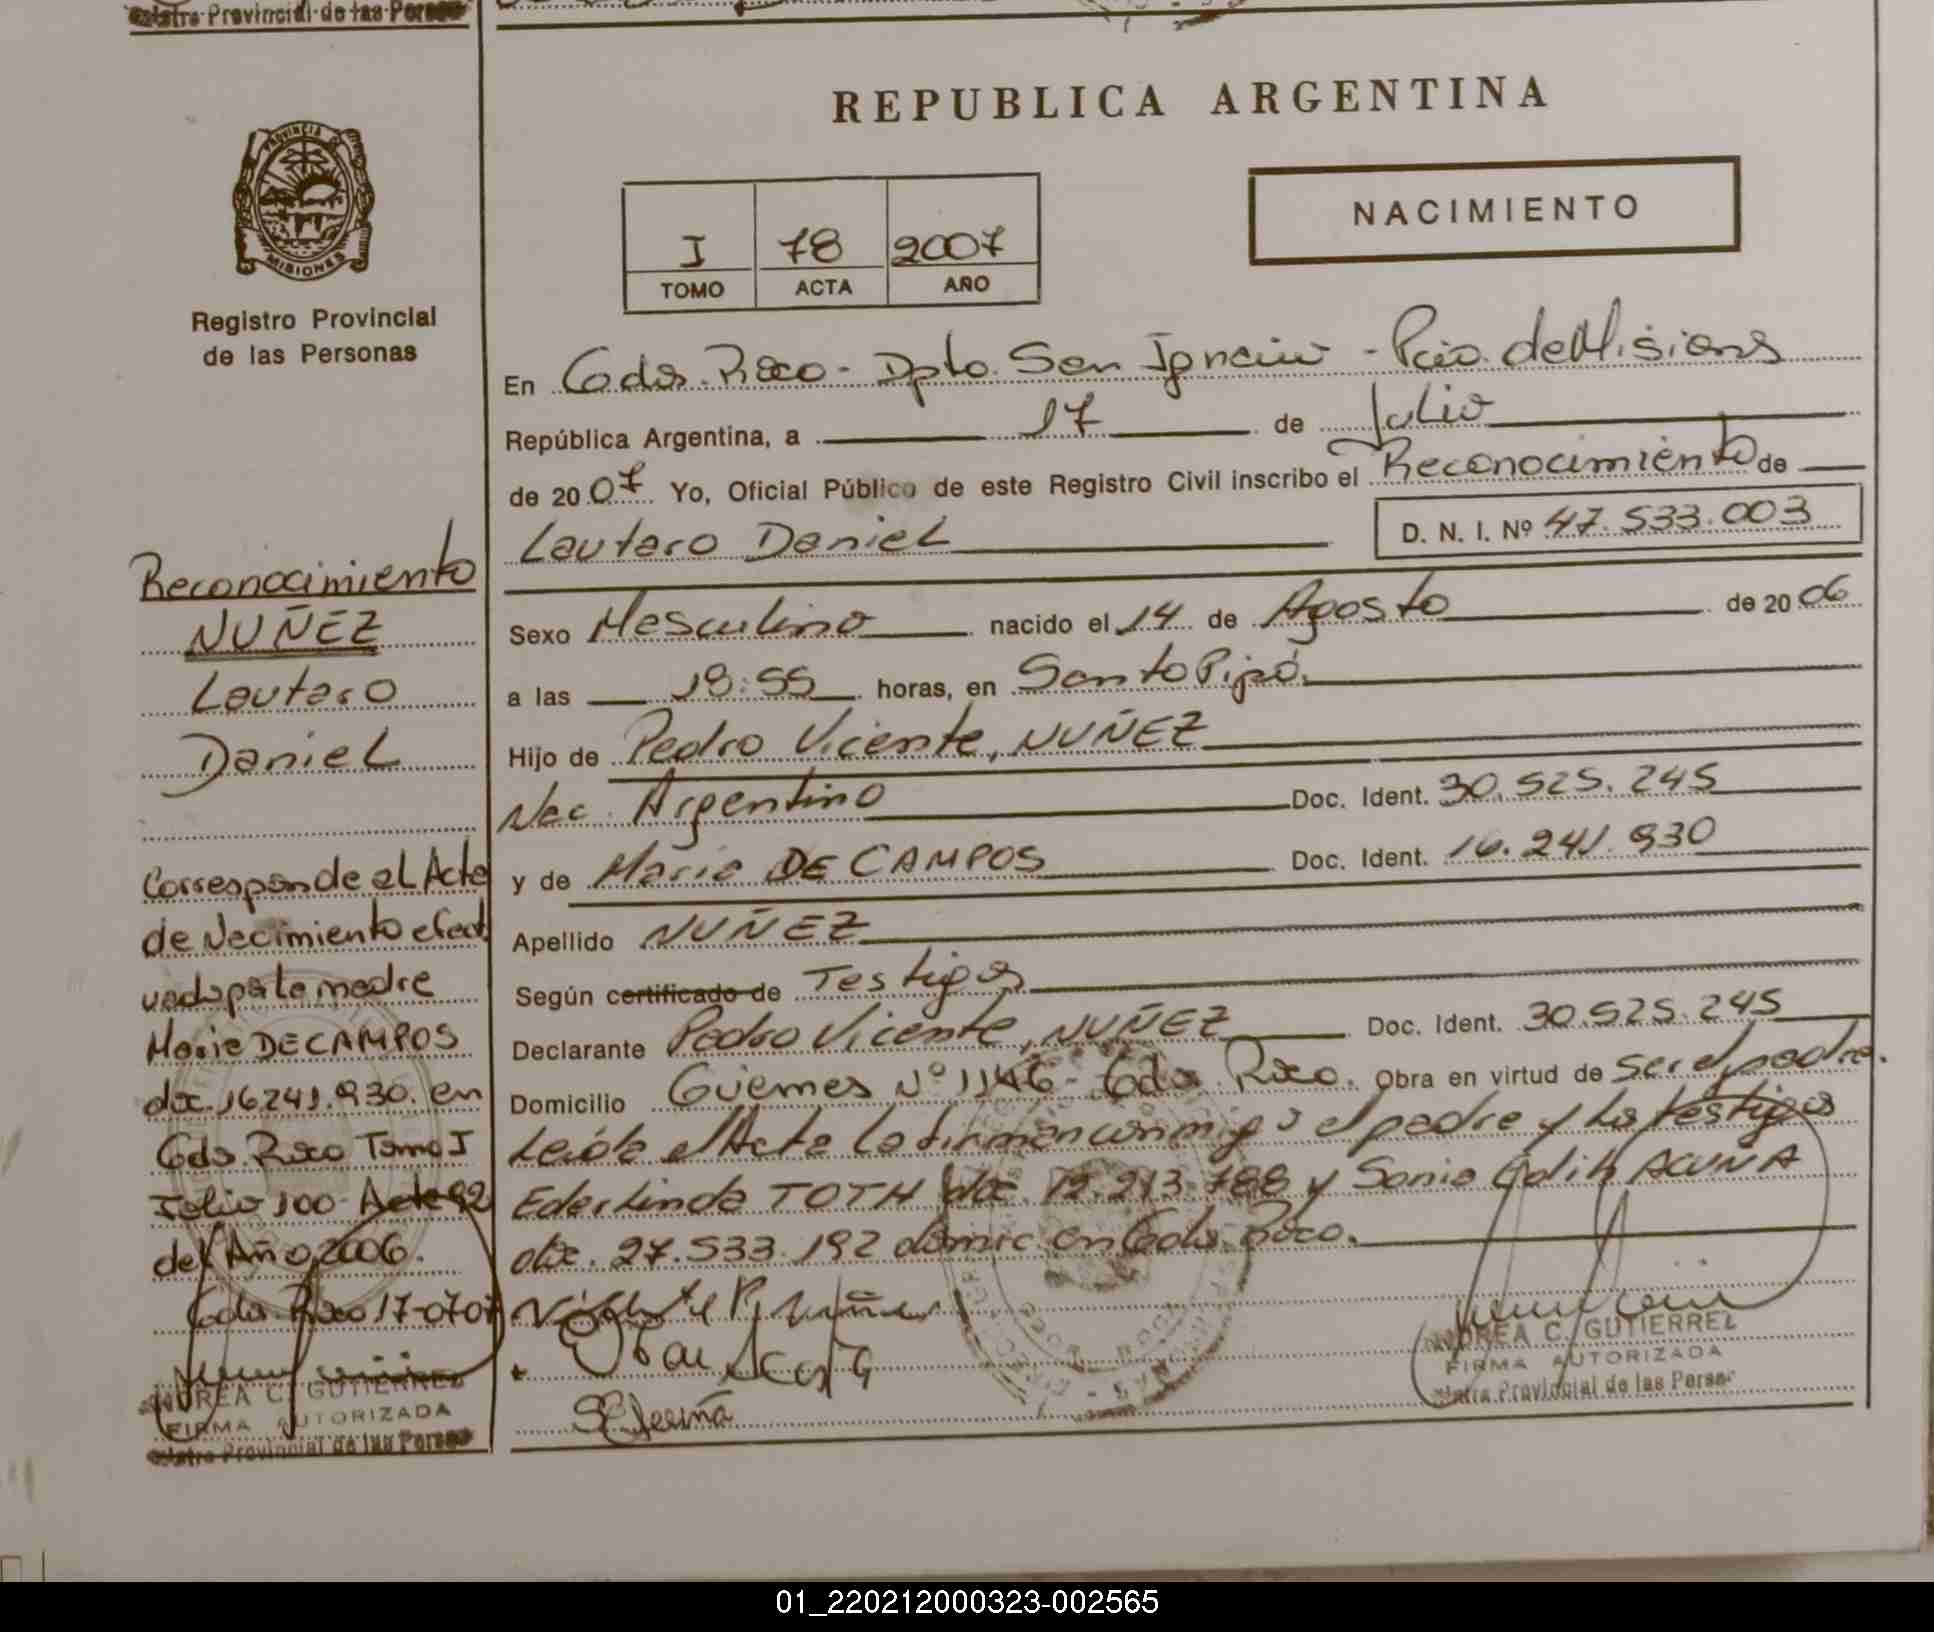 Registro Provincial de las Personas
REPUBLICA ARGENTINA
PROVINCIA
MISIONES
Registro Provincial
de las Personas
I 78 2007
TOMO ACTA AÑO
NACIMIENTO
En Gdor. Roca - Dpto. San Ignacio - Pcia. de Misiones
República Argentina, a 17 de Julio
de 2007 Yo, Oficial Público de este Registro Civil inscribo el Reconocimiento de
Lautaro Daniel D. N. I. Nº 47.533.003
Sexo Masculino nacido el 14 de Agosto de 2006
a las 19:55 horas, en Santo Pipó.
Hijo de Pedro Vicente, NUÑEZ
Nac. Argentino Doc. Ident. 30.525.245
y de Maria DE CAMPOS Doc. Ident. 16.241.930
Apellido NUÑEZ
Según certificado de Testigos
Declarante Pedro Vicente, NUÑEZ Doc. Ident. 30.525.245
Domicilio Güemes Nº 1146 - Gdor. Roca. Obra en virtud de ser el padre.
Leída el Acta la firman conmigo el padre y los testigos
Ederlinda TOTH doc. 12.213.788 y Sonia Edith ACUÑA
doc. 27.533.192 domic. en Gdor. Roca.
ANDREA C. GUTIERREZ
FIRMA AUTORIZADA
Registro Provincial de las Personas
Reconocimiento
NUÑEZ
Lautaro
Daniel
Corresponde al Acta
de Nacimiento efect
uada por la madre
Maria DE CAMPOS
doc. 16.241.930. en
Gdor. Roca Tomo I
Folio 100 - Acta 92
del Año 2006.
Gdor. Roca 17-07-07
ANDREA C. GUTIERREZ
FIRMA AUTORIZADA
Registro Provincial de las Personas
01_220212000323-002565